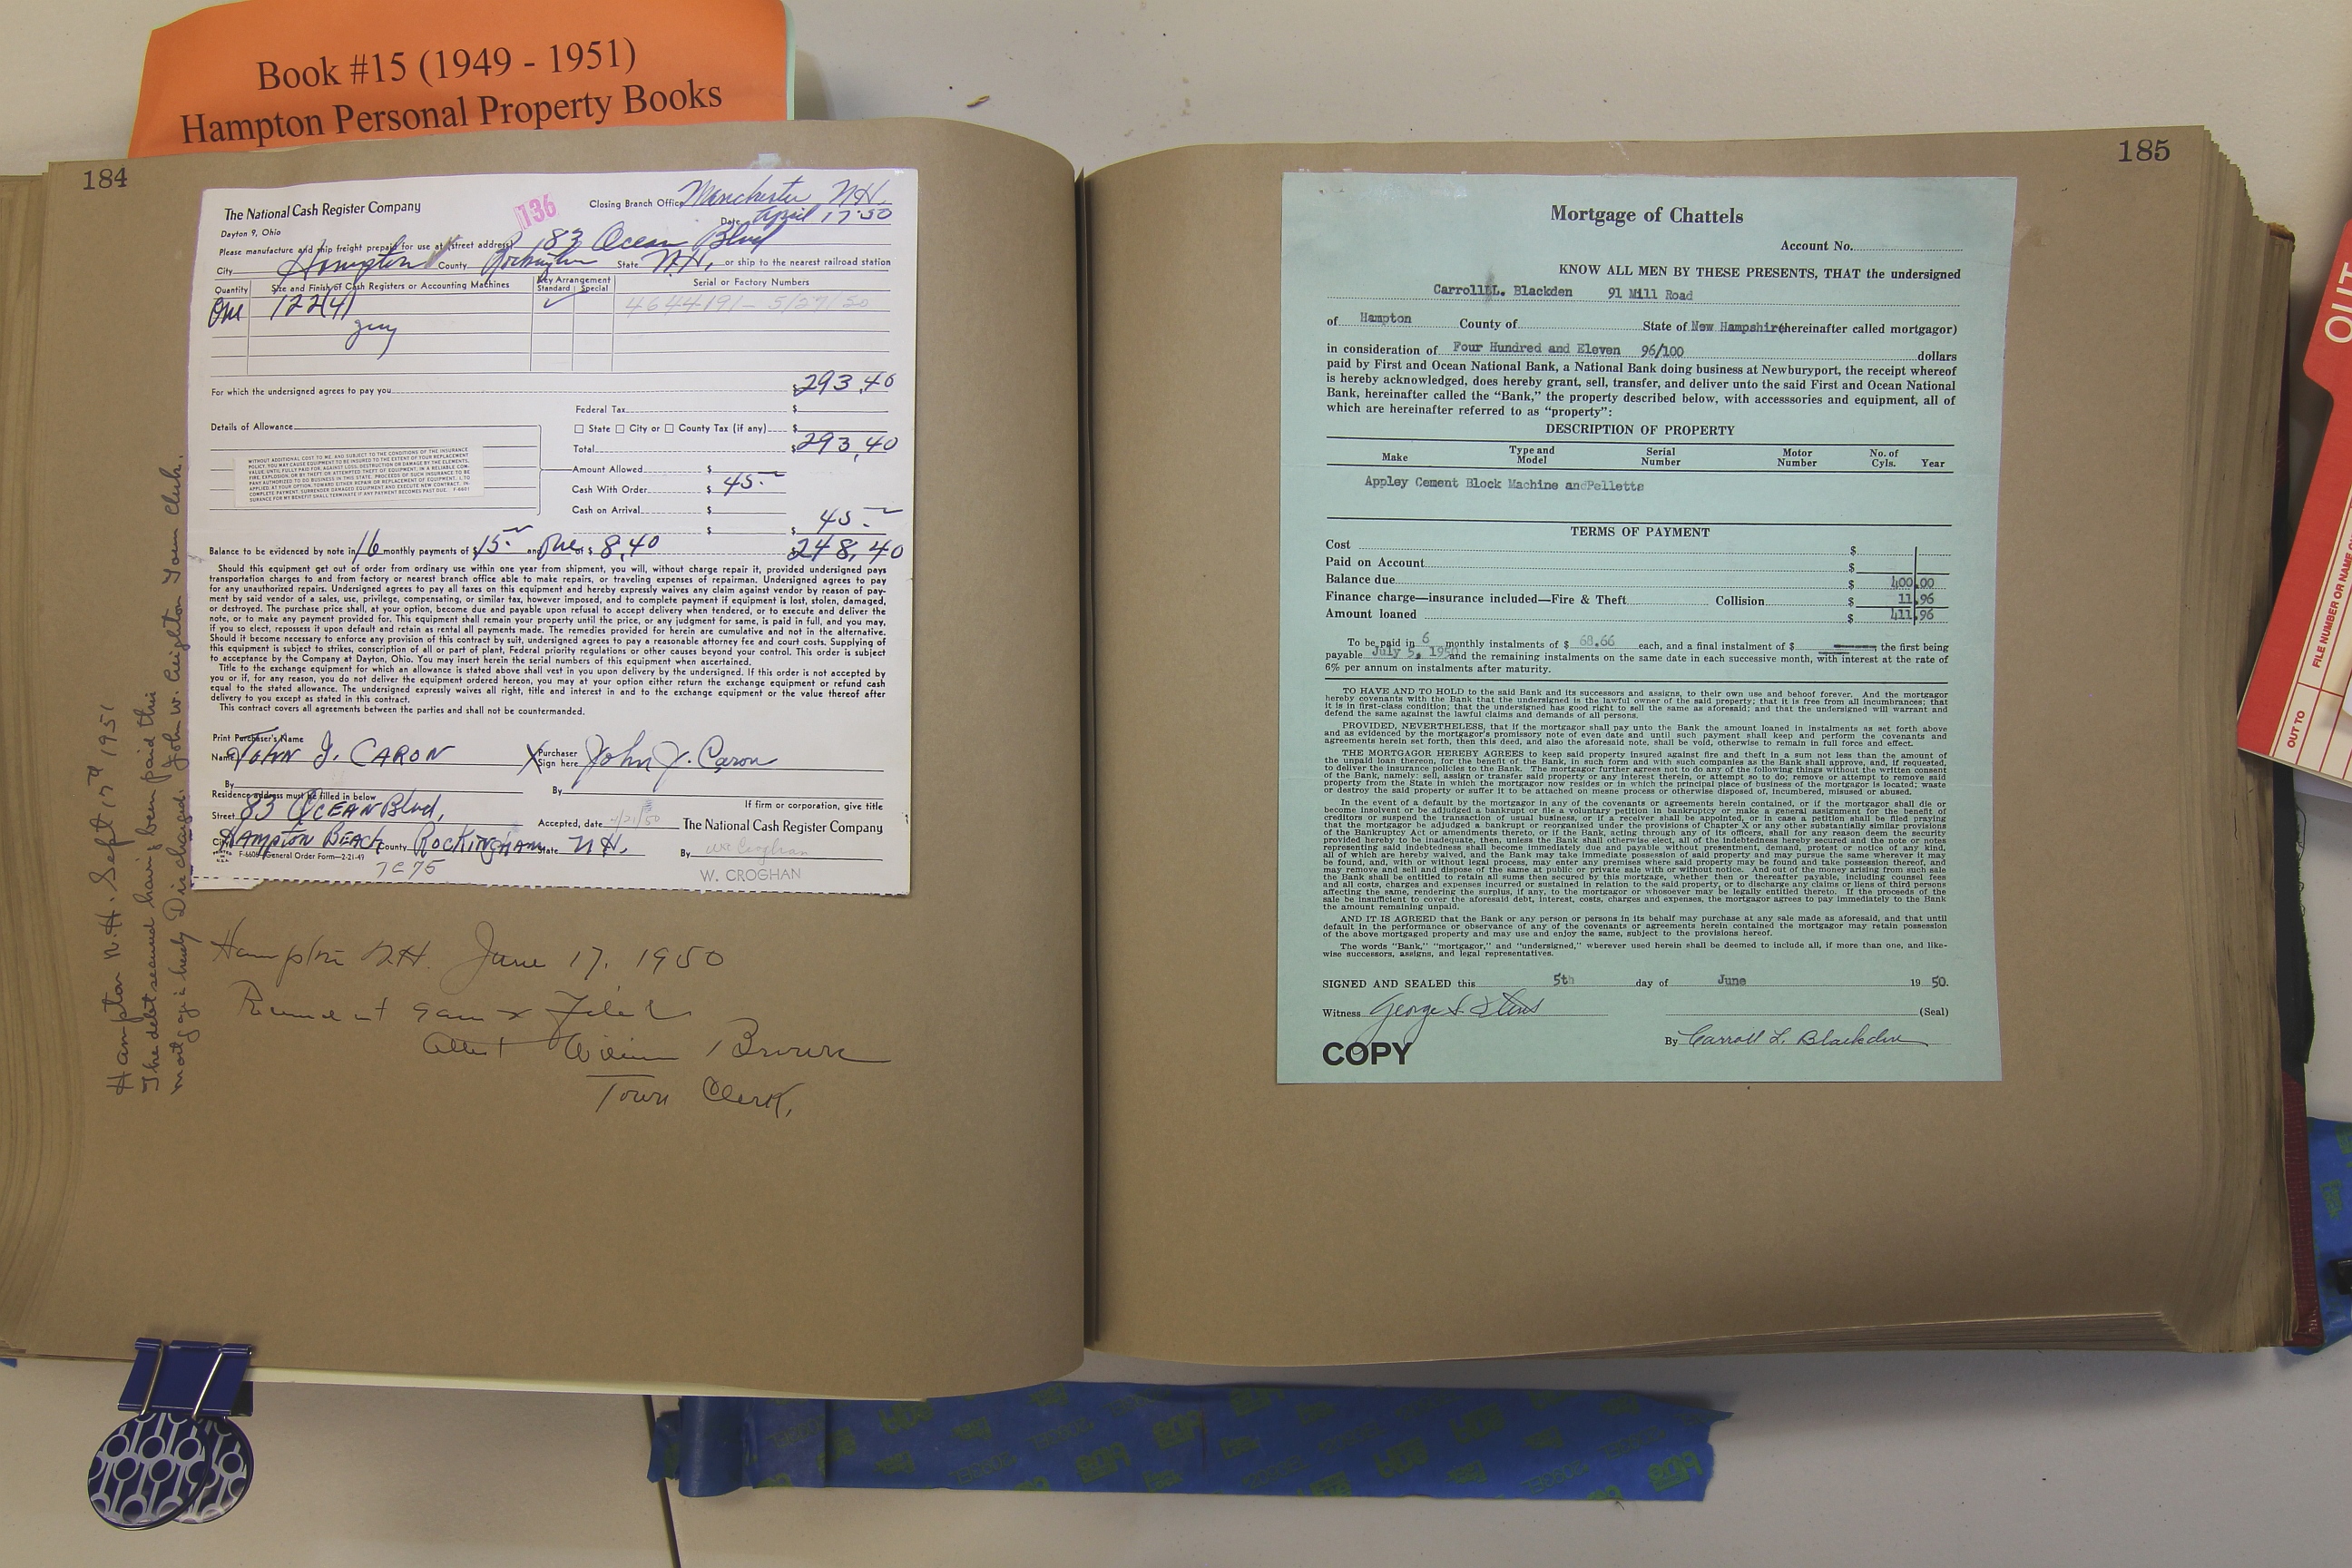 Book #15 (1949 - 1951)
Hampton Personal Property Books
184
The National Cash Register Company
Dayton 9, Ohio
136
Closing Branch Office Manchester N.H.
Date April 17 '50
Please manufacture and ship freight prepaid for use at (street address) 83 Ocean Blvd
City Hampton County Rockingham State N.H. or ship to the nearest railroad station
Quantity Size and Finish of Cash Registers or Accounting Machines Key Arrangement Standard Special Serial or Factory Numbers
One 122(4) 4644191 - 5/27/50
For which the undersigned agrees to pay you $293.40
Federal Tax $
Details of Allowance
State City or County Tax (if any) $
Total $293.40
WITHOUT ADDITIONAL COST TO ME, AND SUBJECT TO THE CONDITIONS OF THE INSURANCE
POLICY, YOU MAY CAUSE EQUIPMENT TO BE INSURED TO THE EXTENT OF YOUR REPLACEMENT
VALUE UNTIL FULLY PAID FOR, AGAINST LOSS, DESTRUCTION OR DAMAGE BY THE ELEMENTS,
FIRE, EXPLOSION, OR BY THEFT OR ATTEMPTED THEFT OF EQUIPMENT, IN A RELIABLE COM-
PANY AUTHORIZED TO DO BUSINESS IN THIS STATE. PROCEEDS OF SUCH INSURANCE TO BE
APPLIED, AT YOUR OPTION, TOWARD EITHER REPAIR OR REPLACEMENT OF EQUIPMENT.
COMPLETE PAYMENT, SURRENDER DAMAGED EQUIPMENT AND EXECUTE NEW CONTRACT. IN-
SURANCE FOR MY BENEFIT SHALL TERMINATE IF ANY PAYMENT BECOMES PAST DUE. F-6601
Amount Allowed $
Cash With Order $ 45.–
Cash on Arrival $
$ $ 45.–
Balance to be evidenced by note in 16 monthly payments of $15.– and One of $ 8.40 $248.40
Should this equipment get out of order from ordinary use within one year from shipment, you will, without charge repair it, provided undersigned pays
transportation charges to and from factory or nearest branch office able to make repairs, or traveling expenses of repairman. Undersigned agrees to pay
for any unauthorized repairs. Undersigned agrees to pay all taxes on this equipment and hereby expressly waives any claim against vendor by reason of pay-
ment by said vendor of a sales, use, privilege, compensating, or similar tax, however imposed, and to complete payment if equipment is lost, stolen, damaged,
or destroyed. The purchase price shall, at your option, become due and payable upon refusal to accept delivery when tendered, or to execute and deliver the
note, or to make any payment provided for. This equipment shall remain your property until the price, or any judgment for same, is paid in full, and you may,
if you so elect, repossess it upon default and retain as rental all payments made. The remedies provided for herein are cumulative and not in the alternative.
Should it become necessary to enforce any provision of this contract by suit, undersigned agrees to pay a reasonable attorney fee and court costs. Supplying of
this equipment is subject to strikes, conscription of all or part of plant, Federal priority regulations or other causes beyond your control. This order is subject
to acceptance by the Company at Dayton, Ohio. You may insert herein the serial numbers of this equipment when ascertained.
Title to the exchange equipment for which an allowance is stated above shall vest in you upon delivery by the undersigned. If this order is not accepted by
you or if, for any reason, you do not deliver the equipment ordered hereon, you may at your option either return the exchange equipment or refund cash
equal to the stated allowance. The undersigned expressly waives all right, title and interest in and to the exchange equipment or the value thereof after
delivery to you except as stated in this contract.
This contract covers all agreements between the parties and shall not be countermanded.
Print Purchaser's Name
Name JOHN J. CARON X Purchaser Sign here John J. Caron
By By
Residence address must be filled in below If firm or corporation, give title
Street 83 OCEAN Blvd, Accepted, date 4/21/50 The National Cash Register Company
City HAMPTON BEACH County ROCKINGHAM State N.H. By W Croghan
PRINTED IN U.S.A. F-6606 General Order Form—2-21-49
7C75 W. CROGHAN
Hampton N.H. June 17, 1950
Received 9am & Filed
Attest William Brown
Town Clerk,
Hampton N.H. Sept 17th 1951
The debt secured having been paid this
mortgage is hereby Discharged. John W. Creighton Town Clerk.
185
Mortgage of Chattels
Account No.
KNOW ALL MEN BY THESE PRESENTS, THAT the undersigned
Carroll L. Blackden 91 Mill Road
of Hampton County of State of New Hampshire (hereinafter called mortgagor)
in consideration of Four Hundred and Eleven 96/100 dollars
paid by First and Ocean National Bank, a National Bank doing business at Newburyport, the receipt whereof
is hereby acknowledged, does hereby grant, sell, transfer, and deliver unto the said First and Ocean National
Bank, hereinafter called the "Bank," the property described below, with accesssories and equipment, all of
which are hereinafter referred to as "property":
DESCRIPTION OF PROPERTY
Make Type and Model Serial Number Motor Number No. of Cyls. Year
Appley Cement Block Machine and Pelletts
TERMS OF PAYMENT
Cost $
Paid on Account $
Balance due $ 400.00
Finance charge—insurance included—Fire & Theft Collision $ 11.96
Amount loaned $ 411.96
To be paid in 6 monthly instalments of $ 68.66 each, and a final instalment of $ the first being
payable July 5, 1950 and the remaining instalments on the same date in each successive month, with interest at the rate of
6% per annum on instalments after maturity.
TO HAVE AND TO HOLD to the said Bank and its successors and assigns, to their own use and behoof forever. And the mortgagor
hereby covenants with the Bank that the undersigned is the lawful owner of the said property; that it is free from all incumbrances; that
it is in first-class condition; that the undersigned has good right to sell the same as aforesaid; and that the undersigned will warrant and
defend the same against the lawful claims and demands of all persons.
PROVIDED, NEVERTHELESS, that if the mortgagor shall pay unto the Bank the amount loaned in instalments as set forth above
and as evidenced by the mortgagor's promissory note of even date and until such payment shall keep and perform the covenants and
agreements herein set forth, then this deed, and also the aforesaid note, shall be void, otherwise to remain in full force and effect.
THE MORTGAGOR HEREBY AGREES to keep said property insured against fire and theft in a sum not less than the amount of
the unpaid loan thereon, for the benefit of the Bank, in such form and with such companies as the Bank shall approve, and, if requested,
to deliver the insurance policies to the Bank. The mortgagor further agrees not to do any of the following things without the written consent
of the Bank, namely: sell, assign or transfer said property or any interest therein, or attempt so to do; remove or attempt to remove said
property from the State in which the mortgagor now resides or in which the principal place of business of the mortgagor is located; waste
or destroy the said property or suffer it to be attached on mesne process or otherwise disposed of, incumbered, misused or abused.
In the event of a default by the mortgagor in any of the covenants or agreements herein contained, or if the mortgagor shall die or
become insolvent or be adjudged a bankrupt or file a voluntary petition in bankruptcy or make a general assignment for the benefit of
creditors or suspend the transaction of usual business, or if a receiver shall be appointed, or in case a petition shall be filed praying
that the mortgagor be adjudged a bankrupt or reorganized under the provisions of Chapter X or any other substantially similar provisions
of the Bankruptcy Act or amendments thereto, or if the Bank, acting through any of its officers, shall for any reason deem the security
provided hereby to be inadequate, then, unless the Bank shall otherwise elect, all of the indebtedness hereby secured and the note or notes
representing said indebtedness shall become immediately due and payable without presentment, demand, protest or notice of any kind,
all of which are hereby waived, and the Bank may take immediate possession of said property and may pursue the same wherever it may
be found, and, with or without legal process, may enter any premises where said property may be found and take possession thereof, and
may remove and sell and dispose of the same at public or private sale with or without notice. And out of the money arising from such sale
the Bank shall be entitled to retain all sums then secured by this mortgage, whether then or thereafter payable, including counsel fees
and all costs, charges and expenses incurred or sustained in relation to the said property, or to discharge any claims or liens of third persons
affecting the same, rendering the surplus, if any, to the mortgagor or whosoever may be legally entitled thereto. If the proceeds of the
sale be insufficient to cover the aforesaid debt, interest, costs, charges and expenses, the mortgagor agrees to pay immediately to the Bank
the amount remaining unpaid.
AND IT IS AGREED that the Bank or any person or persons in its behalf may purchase at any sale made as aforesaid, and that until
default in the performance or observance of any of the covenants or agreements herein contained the mortgagor may retain possession
of the above mortgaged property and may use and enjoy the same, subject to the provisions hereof.
The words "Bank," "mortgagor," and "undersigned," wherever used herein shall be deemed to include all, if more than one, and like-
wise successors, assigns, and legal representatives.
SIGNED AND SEALED this 5th day of June 19 50.
Witness George (Seal)
By Carroll L. Blackden
COPY
OUT
FILE NUMBER OR NAME
OUT TO